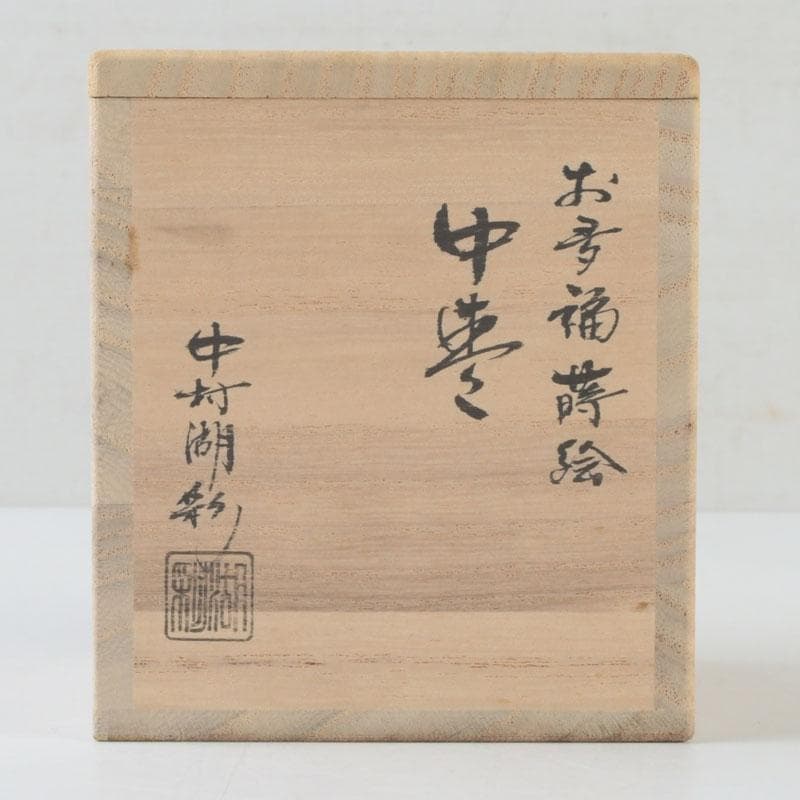 お多福蒔絵
中棗
中村湖彩
湖彩